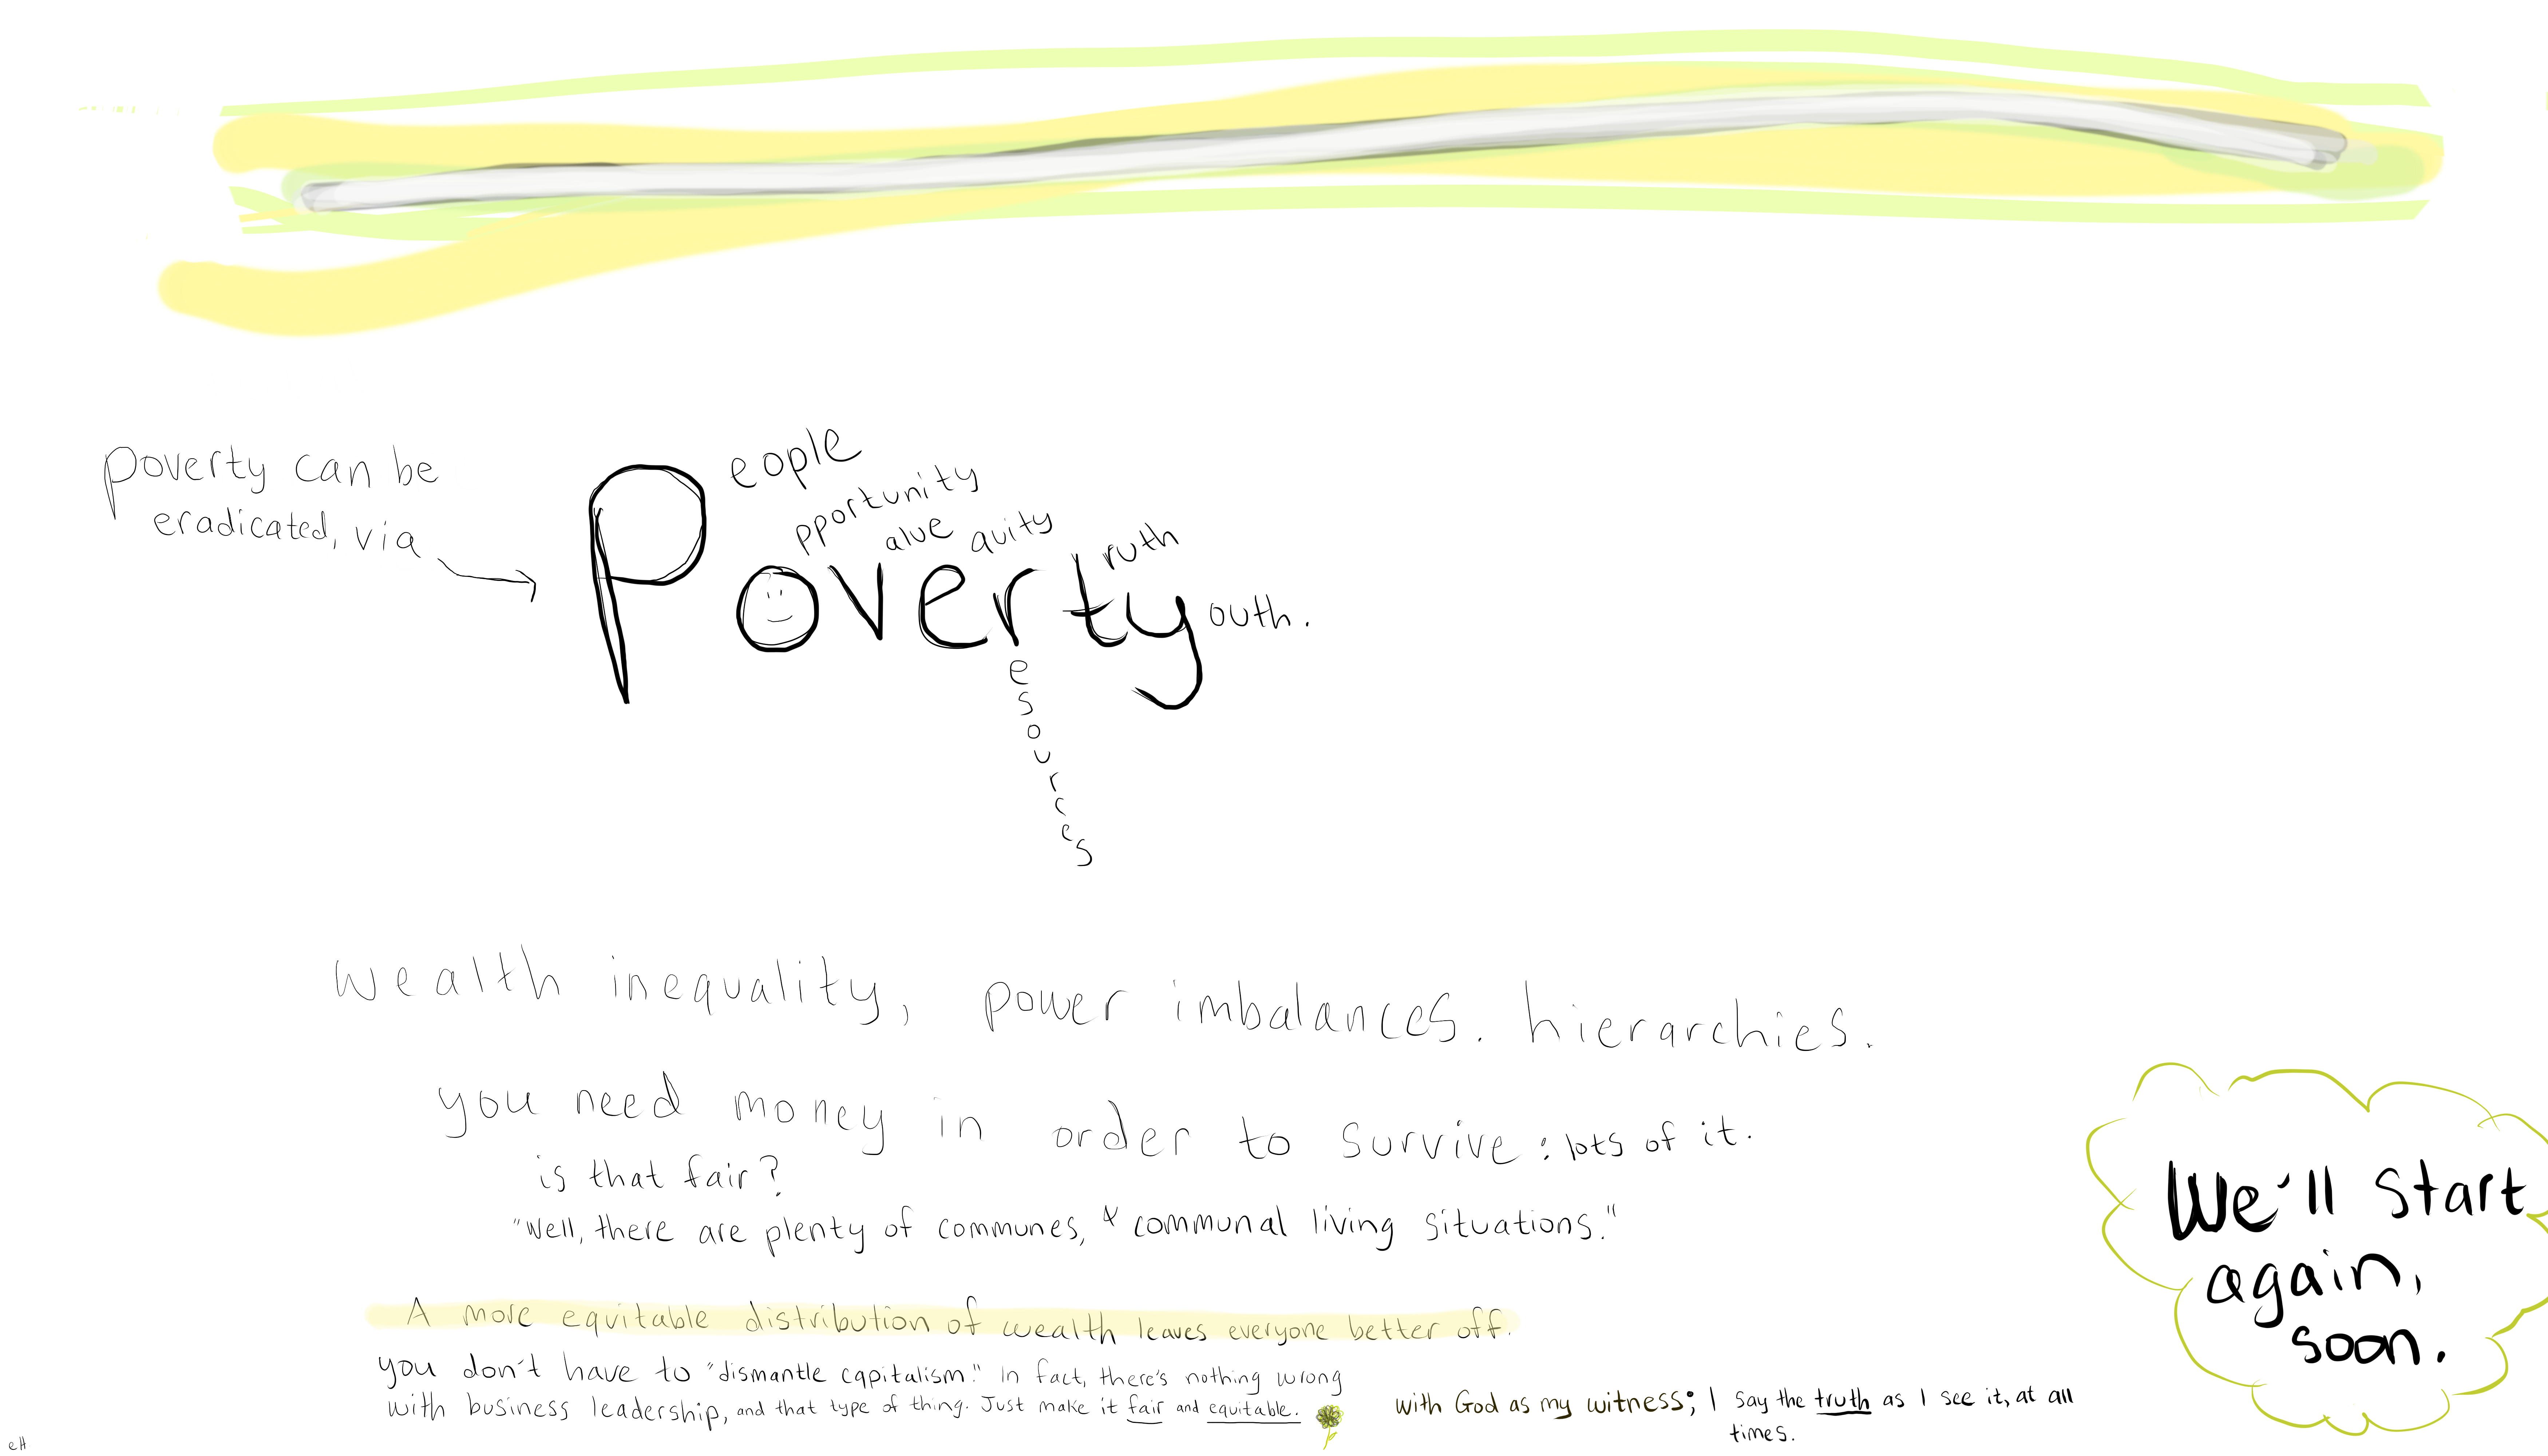 poverty can be
eradicated, via
Poverty
eople
pportunity
alue
quity
esources
ruth
outh.
wealth inequality, power imbalances. hierarchies.
you need money in order to survive: lots of it.
is that fair?
"Well, there are plenty of communes, & communal living situations."
A more equitable distribution of wealth leaves everyone better off.
you don't have to "dismantle capitalism." In fact, there's nothing wrong
with business leadership, and that type of thing. Just make it fair and equitable.
with God as my witness; I say the truth as I see it, at all
times.
We'll start
again,
soon.
eH